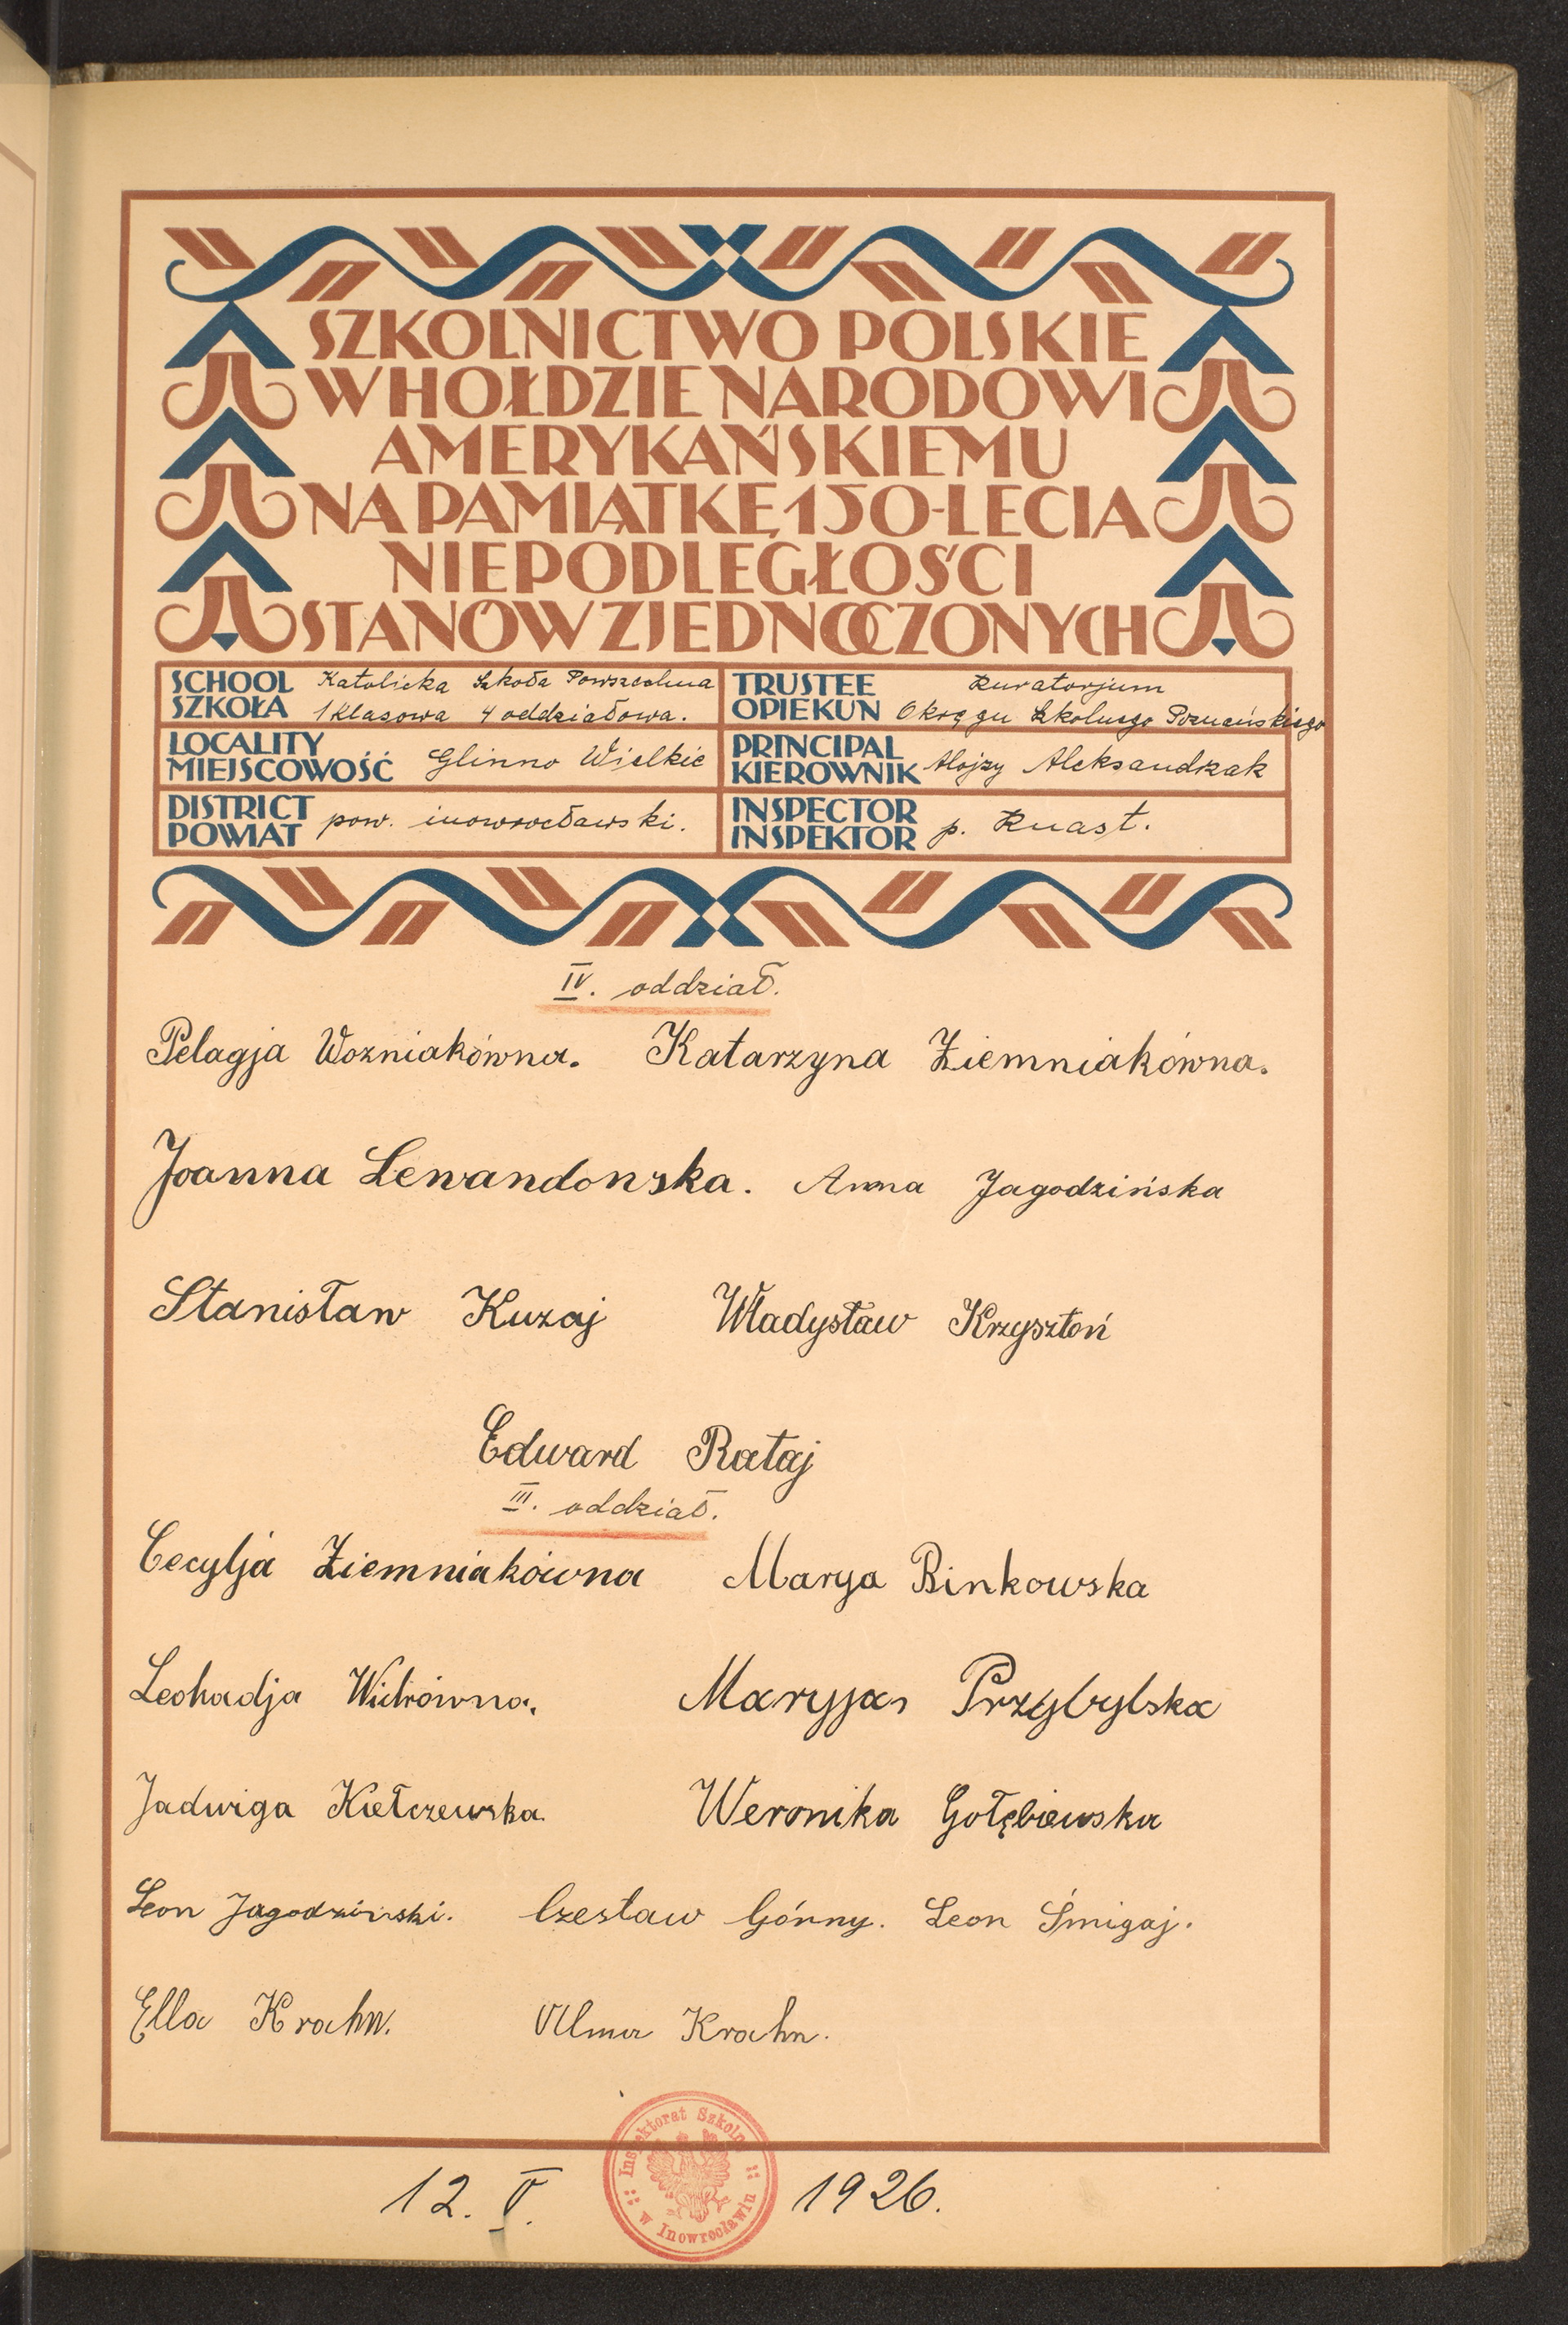 SZKOLNICTWO POLSKIE
W HOŁDZIE NARODOWI
AMERYKAŃSKIEMU
NA PAMIĄTKĘ 150-LECIA
NIEPODLEGŁOŚCI
STANÓW ZJEDNOCZONYCH
SCHOOL
SZKOŁA
Katolicka Szkoła Powszechna
1 klasowa 4 oddziałowa.
TRUSTEE
OPIEKUN
Kuratorjum
Okręgu Szkolnego Poznańskiego
LOCALITY
MIEJSCOWOŚĆ
Glinno Wielkie
PRINCIPAL
KIEROWNIK
Alojzy Aleksandrzak
DISTRICT
POWIAT
pow. inowrocławski.
INSPECTOR
INSPEKTOR
p. Knast.
IV. oddział.
Pelagja Wozniakówna. Katarzyna Ziemniakówna.
Joanna Lewandowska. Anna Jagodzińska
Stanisław Kuzaj Władysław Krzysztoń
Edward Rataj
III. oddział.
Cecylja Ziemniakówna Marya Binkowska
Leohadja Maryja Przybylska
Jadwiga Kiełczewska Weronika Gołębiewska
Leon Jagodziński. Czesław Górny. Leon Śmigaj.
Ella Krahn. Alma Krahn.
Inspektorat Szkolny
w Inowrocławiu
12. V. 1926.